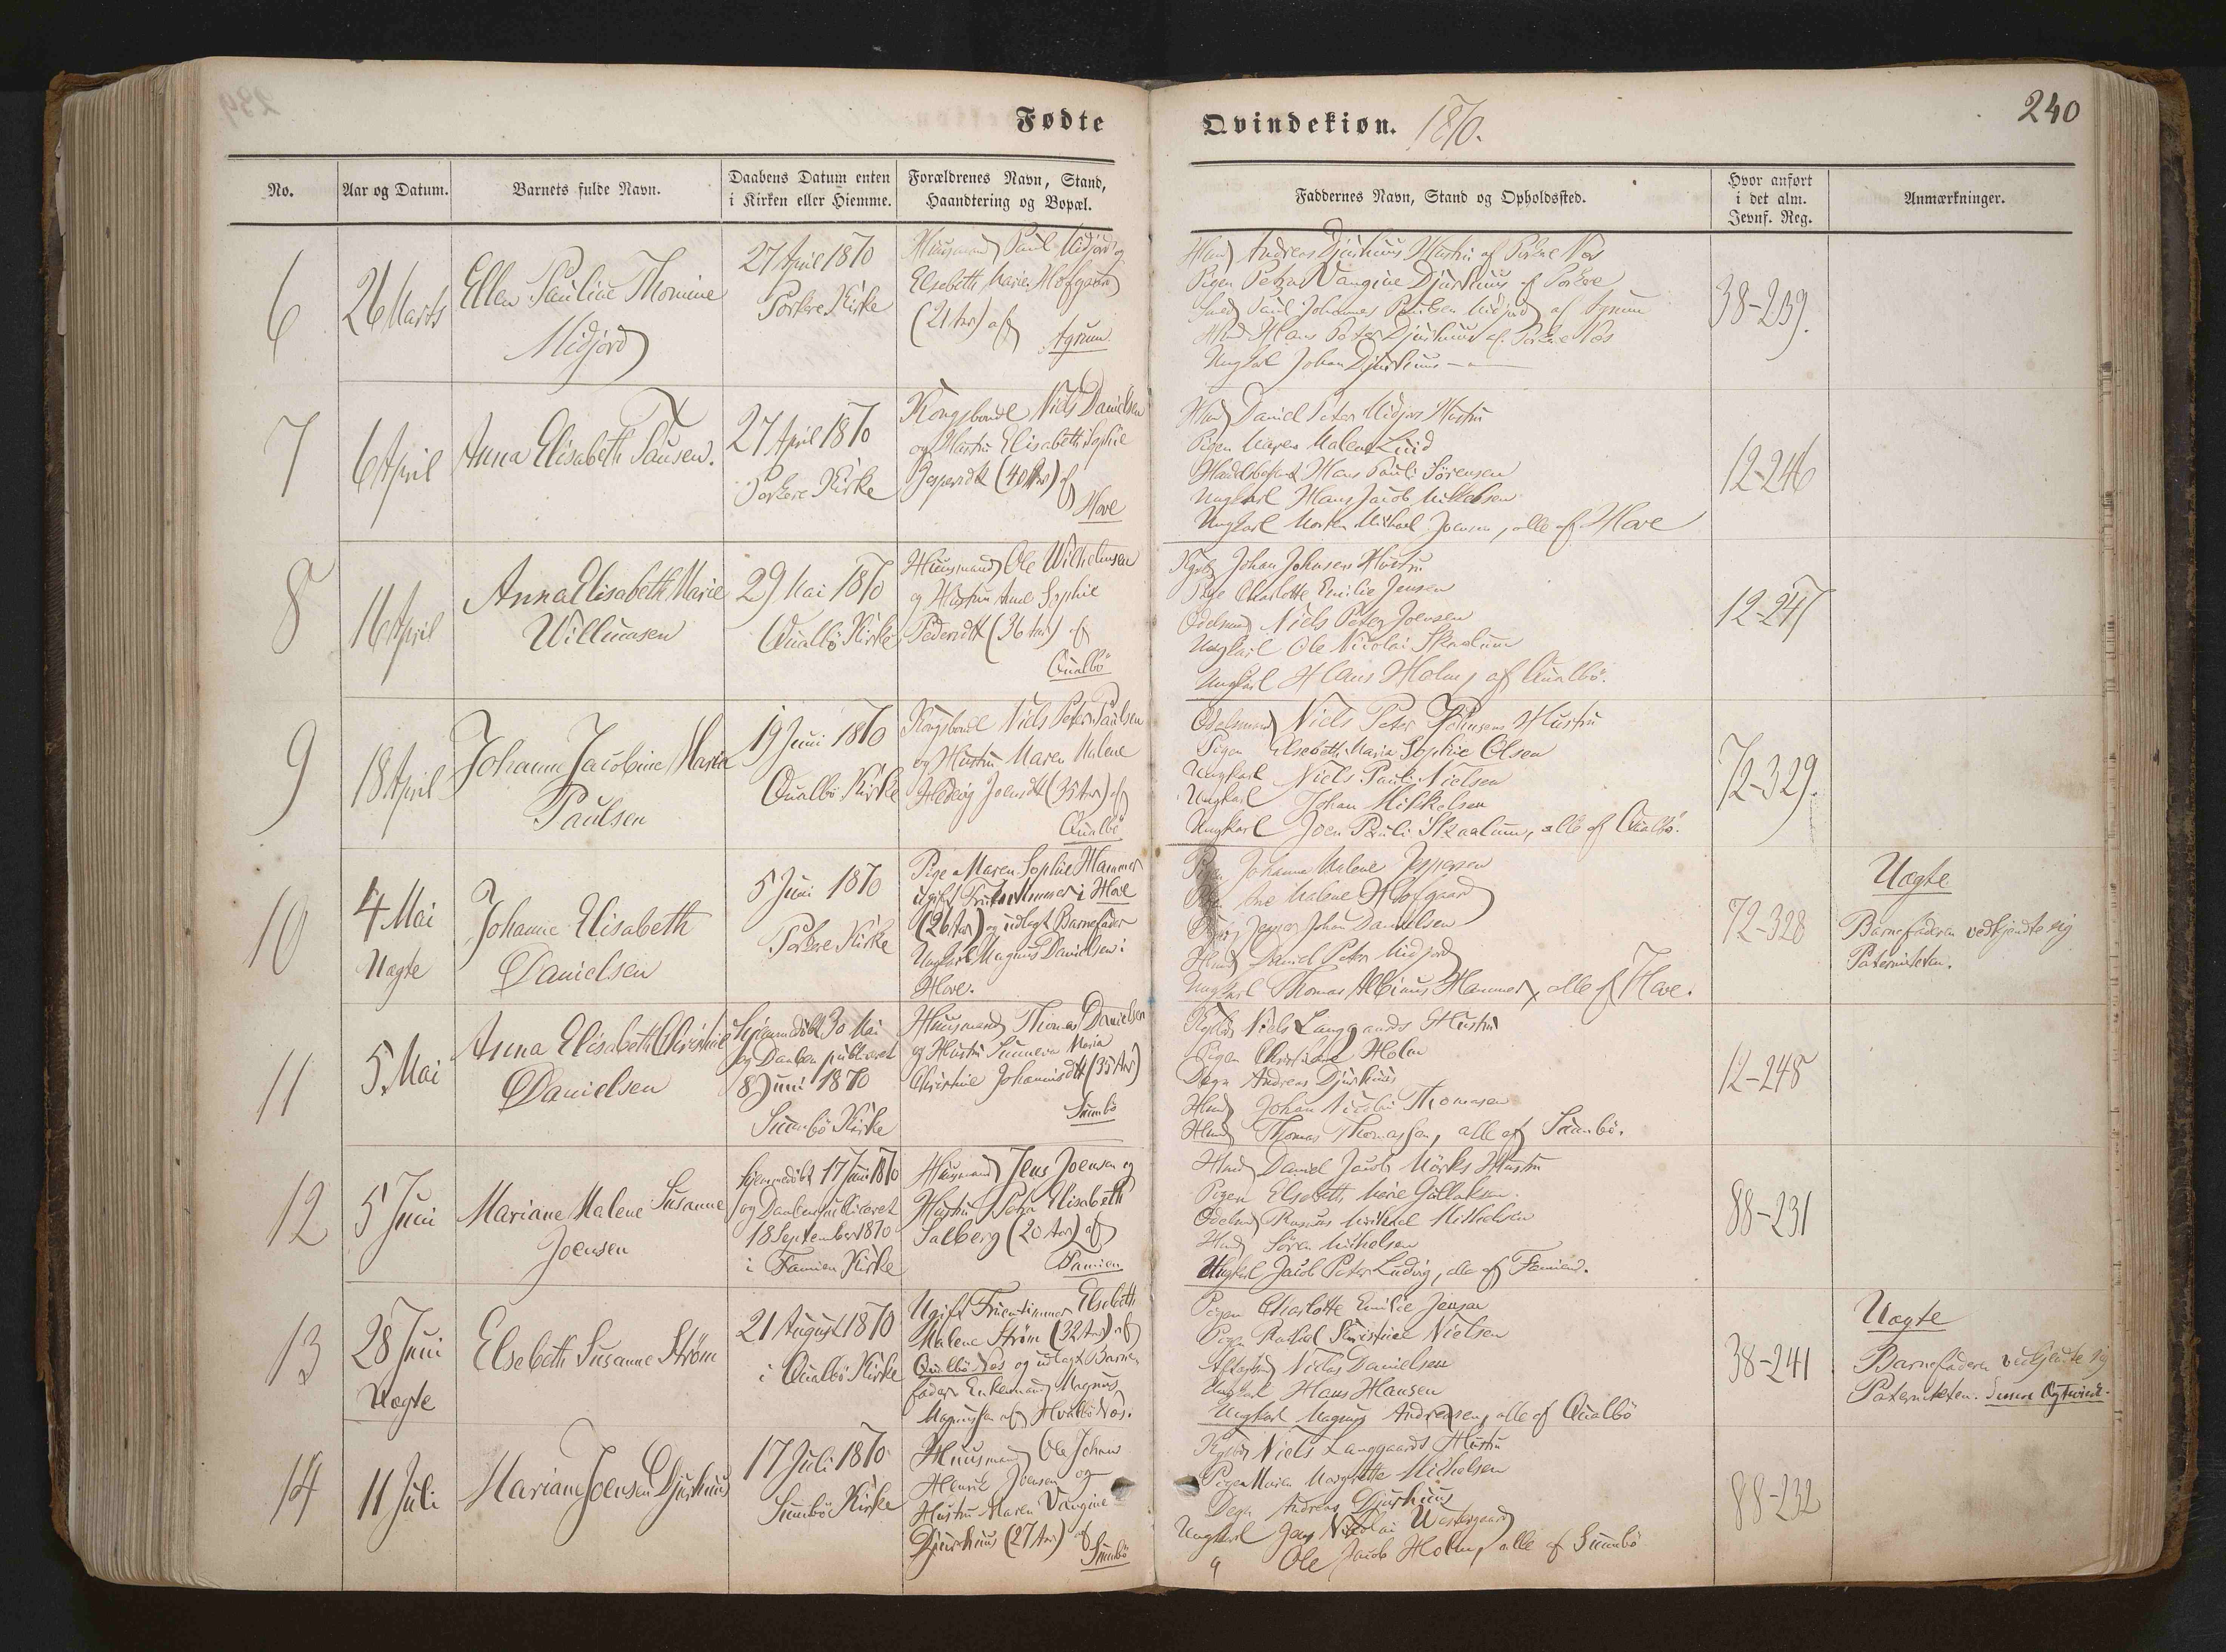 Fødte
Qvindekiøn. 1870.
240
No.
Aar og Datum.
Barnets fulde Navn.
Daabens Datum enten
i Kirken eller Hiemme.
Forældrenes Navn, Stand,
Haandtering og Bopæl.
Faddernes Navn, Stand og Opholdssted.
Hvor anført
i det alm.
Jevnf. Reg.
Anmærkninger.
6
26 Marts
Ellen Pauline Thomine
Midjord
27 April 1870
Porkere Kirke
Huusmand Paul Midjord og
Elsebeth Marie Hofgaard
(21 Aar) af
Agrum
Hmd Andreas Djurhuus Hustru af Porkere Nes
Pigen Petra Vangine Djurhuus af Porkere
Paul Johannes Poulsen Midjord af
Hmd Hans Peter Djurhuus af Porkere Nes
Ungkarl Johan Djurhuus
38-239.
7
6 April
Anna Elisabeth Tausen.
27 April 1870
Porkere Kirke
Kongsbonde Niels Danielsen
og Hustru Elisabeth Sophie
Jespersdtt (40 Aar) af
Hove
Hmd Daniel Peter Midjord Hustru
Pigen Maren Malene Lund
Hans Pauli Sørensen
Ungkarl Hans Jacob Mikkelsen
Ungkarl Morten Michael Joensen, alle af Hove
12-246
8
16 April
Anna Elisabeth Marie
Willumsen
29 Mai 1870
Qualbö Kirke
Huusmand Ole Wilhelmsen
og Hustru Anne Sophie
Pedersdtt (36 Aar) af
Qualbö
Kgsb Johan Johnsens Hustru
Pige Charlotte Emilie Jensen
Odelsmd Niels Peter Joensen
Ungkarl Ole Nicolai Skaalum
Ungkarl Hans Holm, af Qualbö.
12-247
9
18 April
Johanne Jacobine Maria
Paulsen
19 Juni 1870
Qualbö Kirke
Kongsbonde Niels Peter Paulsen
og Hustru Maren Malene
Hedvig Joensdtt (35 Aar) af
Qualbö
Odelsmand Niels Peter Johnsens Hustru
Pigen Elsebeth Maria Sophie Olsen
Ungkarl Niels Pauli Nielsen
Ungkarl Johan Mikkelsen
Ungkarl Joen Pauli Skaalum, alle af Qualbö.
72-329.
10
4 Mai
Uægte
Johanne Elisabeth
Danielsen
5 Juni 1870
Porkere Kirke
Pige Maren Sophie Hammer
ugift Fruentimmer i Hove
(26 Aar) og udlagt Barnefader
Ungkarl Magnus Danielsen i
Hove.
Pigen Johanne Malene Jespersen
Pige Ane Malene Hofgaard
Jesper Johan Danielsen
Hmd Daniel Peter Midjord
Ungkarl Thomas Albinus Hammer, alle af Hove.
72-328
Uægte
Barnefaderen vedkjendte sig
Paterniteten.
11
5 Mai
Anna Elisabeth Christine
Danielsen
Hjemmedöbt 30 Mai
og Daaben publiceret
8 Juni 1870
Sumbö Kirke
Huusmand Thomas Danielsen
og Hustru Sunneva Maria
Christine Johannisdtt (35 Aar)
Sumbö
Kgsb Niels Langgaards Hustru
Pigen Christiane Holm
Degn Andreas Djurhuus
Hmd Johan Nicolai Thomasen
Hmd Thomas Thomassen, alle af Sumbö.
12-248
12
5 Juni
Mariane Malene Susanne
Joensen
hjemmedöbt 17 Juni 1870
og Daaben publiceret
18 September 1870
i Famien Kirke
Huusmand Jens Joensen og
Hustru Petra Elisabeth
Salberg (20 Aar) af
Famien
Hmd Daniel Jacob Mörks Hustru
Pigen Elsebeth Marie Gullaksen.
Odelsmd Rasmus Michael Michelsen
Hmd Sören Michelsen
Ungkarl Jacob Peter Ludvig, alle af Famien.
88-231
13
28 Juni
Uægte
Elsebeth Susanne Ström
21 August 1870
i Qualbö Kirke
Ugift Fruentimmer Elsebeth
Malene Ström (32 Aar) af
Qualbö Nes og udlagt Barne-
fader Enkemand Magnus
Magnussen af Hvalbö Nes.
Pigen Charlotte Emilie Jensen
Pigen Rachel Christine Nielsen
Niclas Danielsen
Ungkarl Hans Hansen
Ungkarl Magnus Andreasen, alle af Qualbö
38-241
Uægte
Barnefaderen vedkjendte sig
Paterniteten.
14
11 Juli
Mariane Joensen Djurhuus
17 Juli 1870
Sumbö Kirke
Huusmand Ole Johan
Henrik Joensen og
Hustru Maren Vangine
Djurhuus (27 Aar) af
Sumbö
Kgsb Niels Langgaards Hustru
Pigen Maren Margrethe Michelsen
Degn Andreas Djurhuus
Ungkarl Jens Nicolai Westergaard
" Ole Jacob Holm, alle af Sumbö
88-232